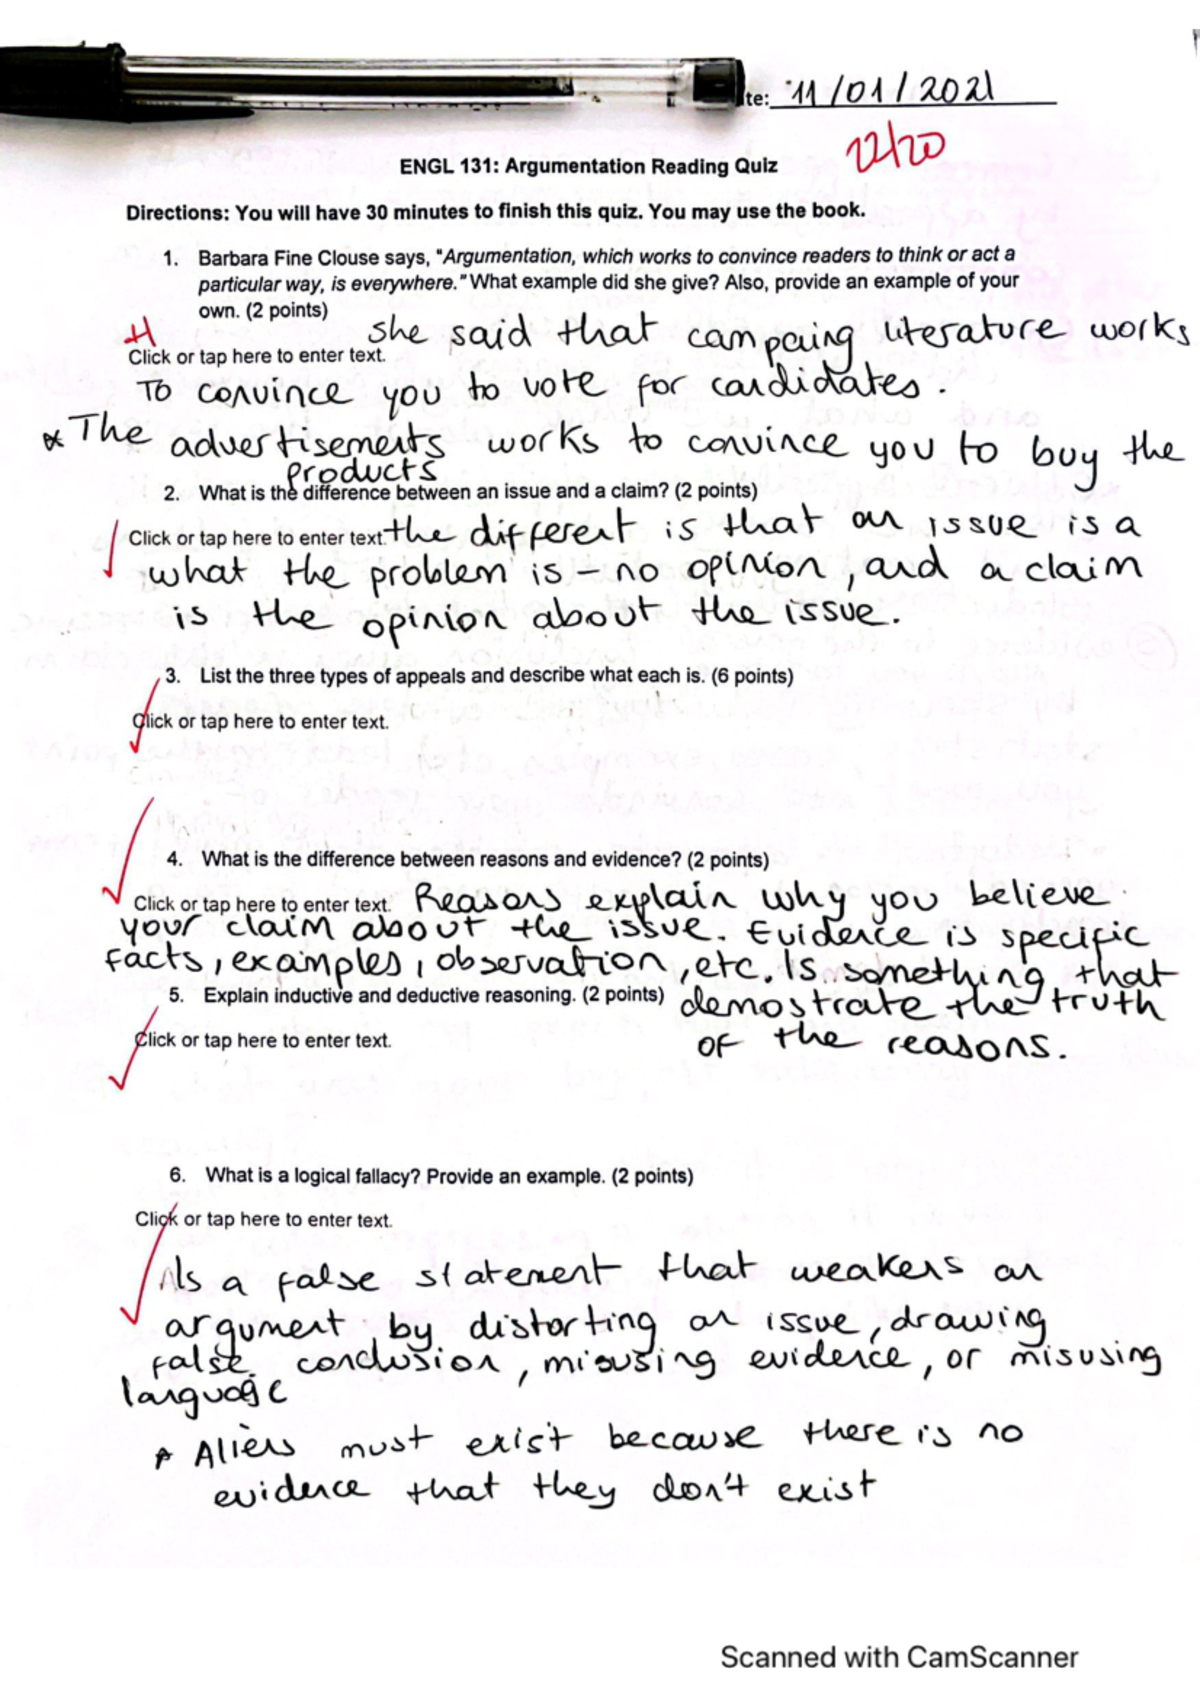 te: 11/01/2021
22/20
ENGL 131: Argumentation Reading Quiz
Directions: You will have 30 minutes to finish this quiz. You may use the book.
1. Barbara Fine Clouse says, "Argumentation, which works to convince readers to think or act a
particular way, is everywhere." What example did she give? Also, provide an example of your
own. (2 points)
she said that campaing literature works
Click or tap here to enter text.
To convince you to vote for candidates.
* The advertisements works to convince you to buy the
products
2. What is the difference between an issue and a claim? (2 points)
Click or tap here to enter text. the different is that an issue is a
what the problem is – no opinion, and a claim
is the opinion about the issue.
3. List the three types of appeals and describe what each is. (6 points)
Click or tap here to enter text.
4. What is the difference between reasons and evidence? (2 points)
Click or tap here to enter text. Reasons explain why you believe
your claim about the issue. Evidence is specific
facts, examples, observation, etc. Is something that
5. Explain inductive and deductive reasoning. (2 points) demostrate the truth
Click or tap here to enter text. of the reasons.
6. What is a logical fallacy? Provide an example. (2 points)
Click or tap here to enter text.
Is a false statement that weakens an
argument by distorting an issue, drawing
false conclusion, misusing evidence, or misusing
language
* Aliens must exist because there is no
evidence that they don't exist
Scanned with CamScanner